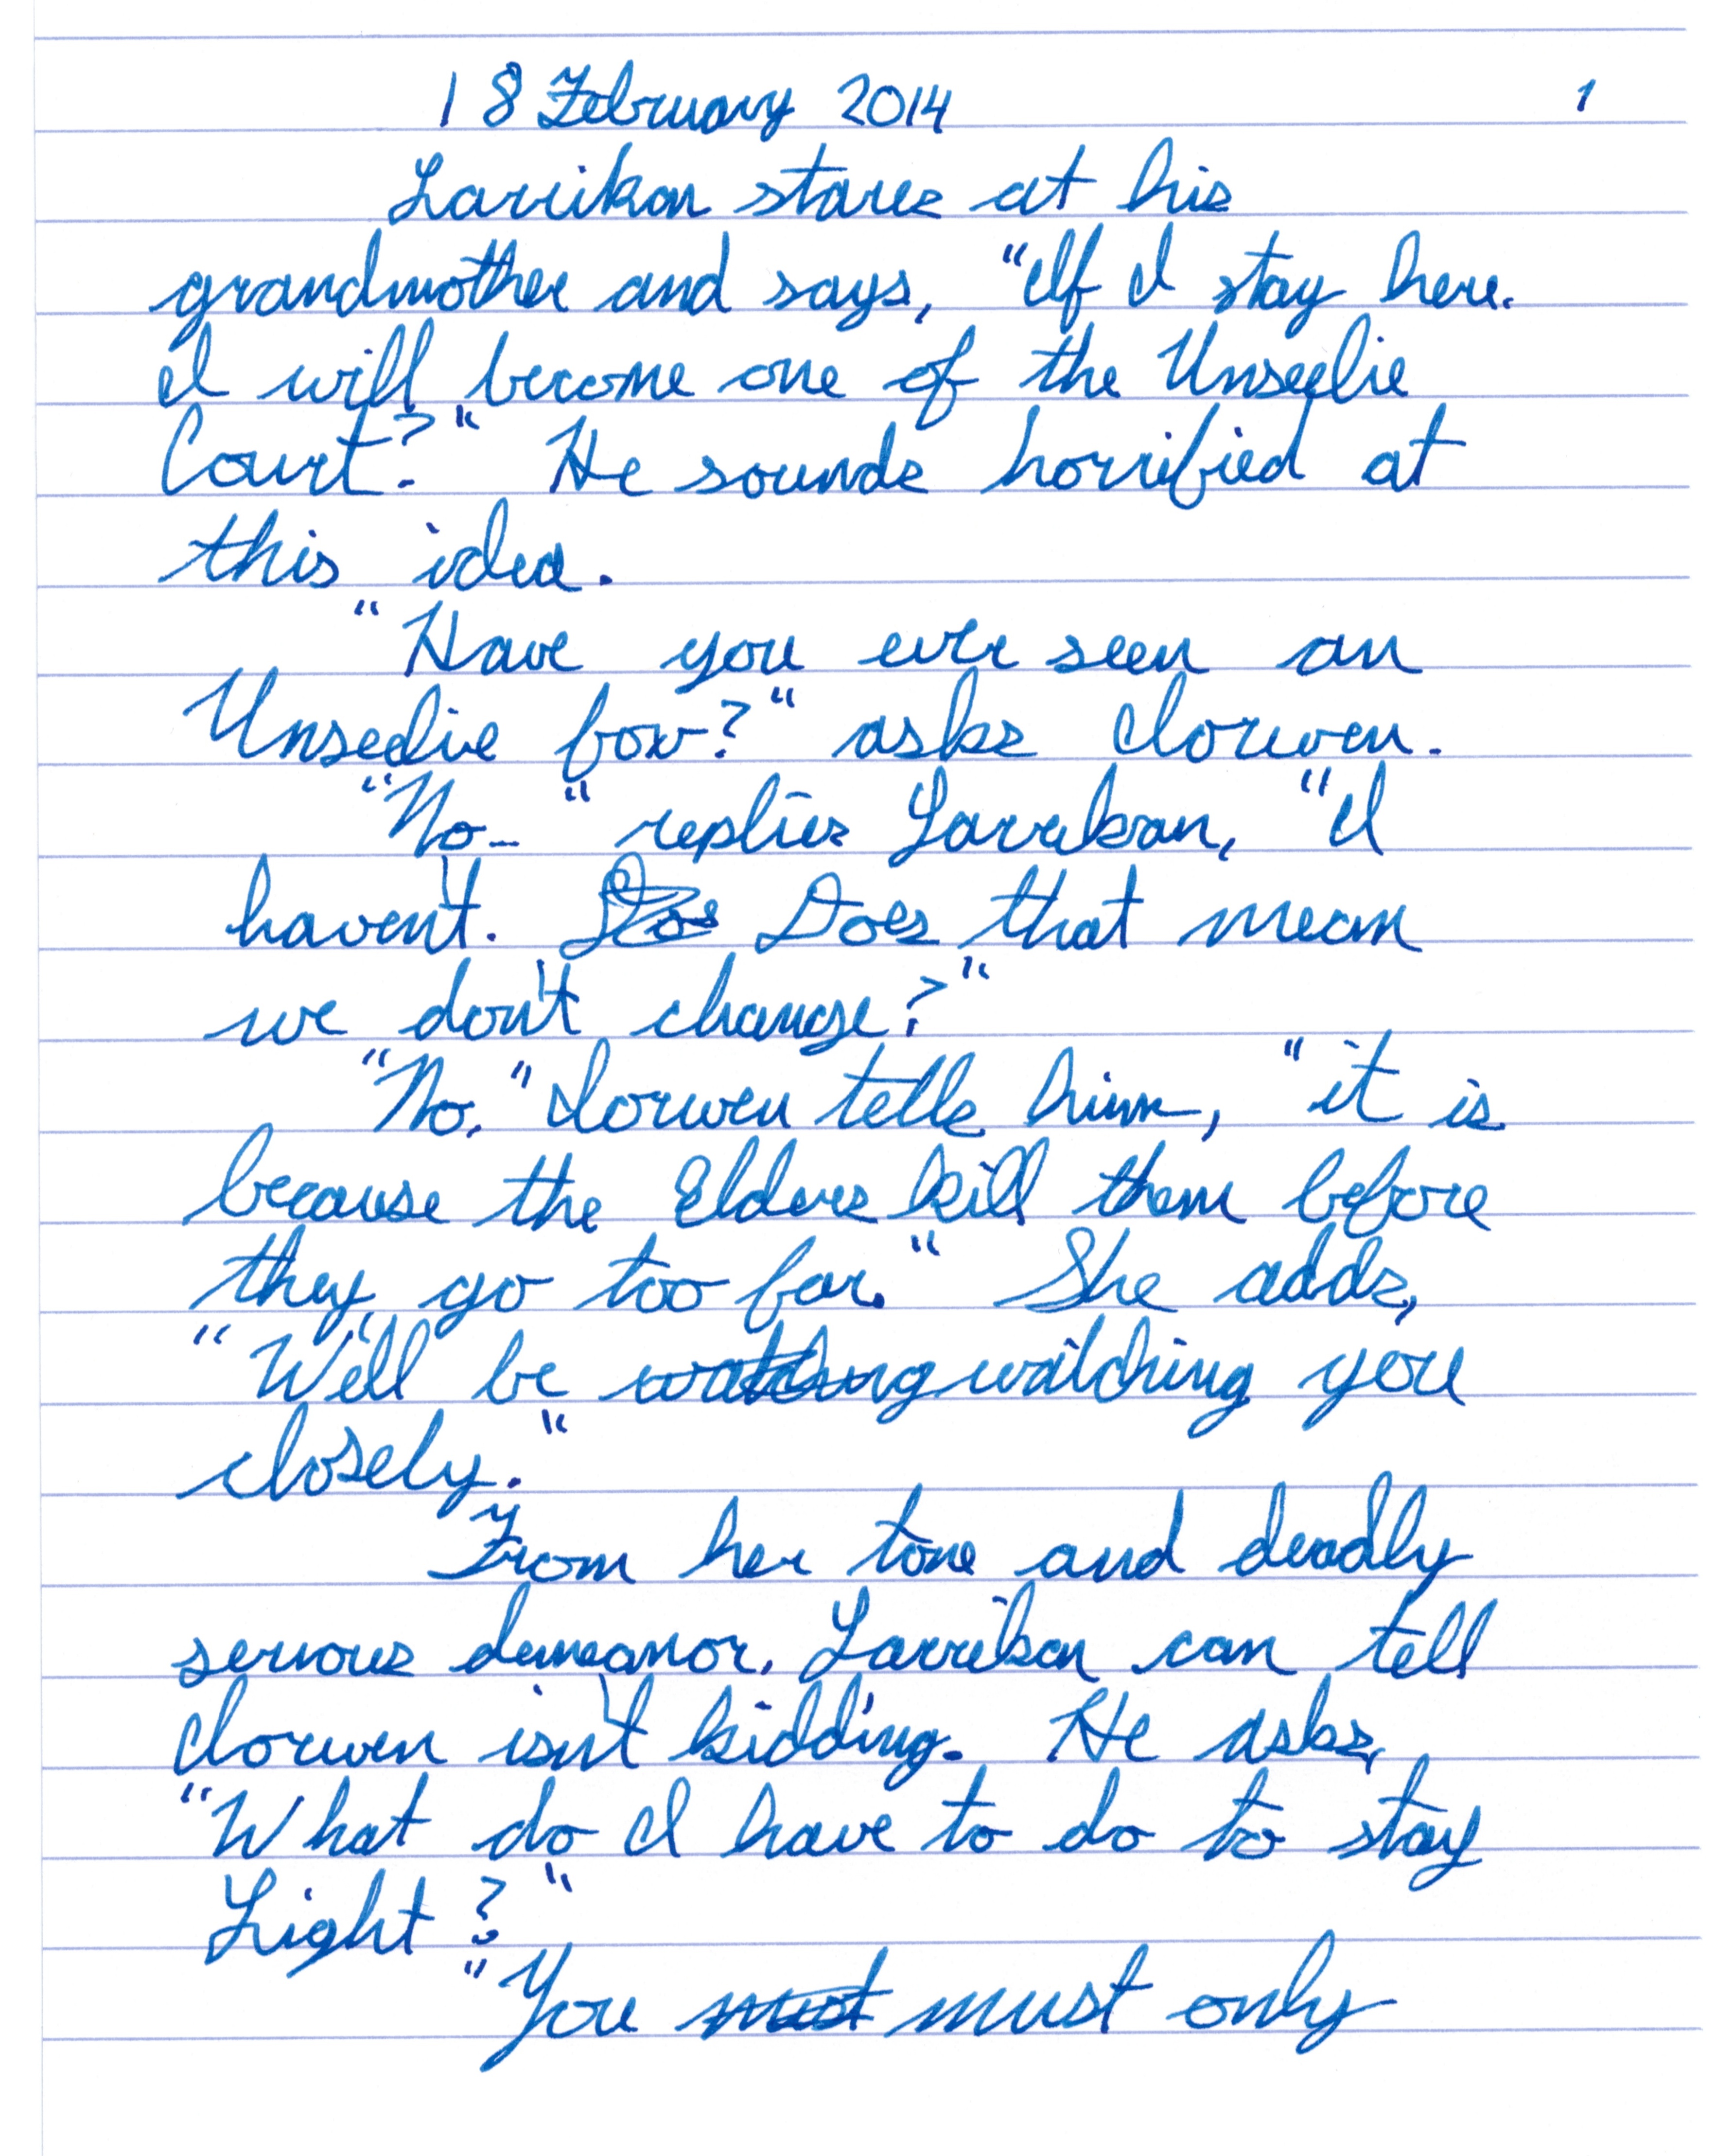 18 February 2014 1
Larrikan stares at his
grandmother and says, "If I stay here.
I will become one of the Unseelie
Court?" He sounds horrified at
this idea.
"Have you ever seen an
Unseelie fox?" asks Iorwen.
"No." replies Larrikan, "I
haven't. Does Does that mean
we don't change?"
"No." Iorwen tells him, "it is
because the Elders kill them before
they go too far." She adds,
"We'll be watching watching you
closely."
From her tone and deadly
serious demeanor, Larrikan can tell
Iorwen isn't kidding. He asks,
"What do I have to do to stay
Light?"
"You must must only